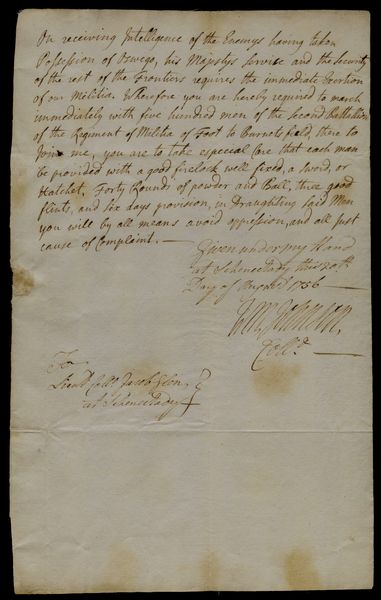 On receiving Intelligence of the Enemys having taken
Possession of Oswego, his Majestys Service and the Security
of the rest of the Frontiers requires the immediate Exertion
of our Militia. Wherefore you are hereby required to march
immediately with five hundred men of the Second Battallion
of the Regiment of Militia of Foot to Burnetsfield, there to
Join me, you are to take especial Care that each man
be provided with a good firelock well fixed, a Sword, or
Hatchet, Forty Rounds of powder and Ball, three good
flints, and Six days provision, in Draughting said Men
you will by all means avoid oppression, and all just
cause of Complaint.
Given under my Hand
at Schenectady this 20th
Day of 1756
Wm Johnson
Coll.
To
Lieut Coll. Jacob Glen
at Schenectady